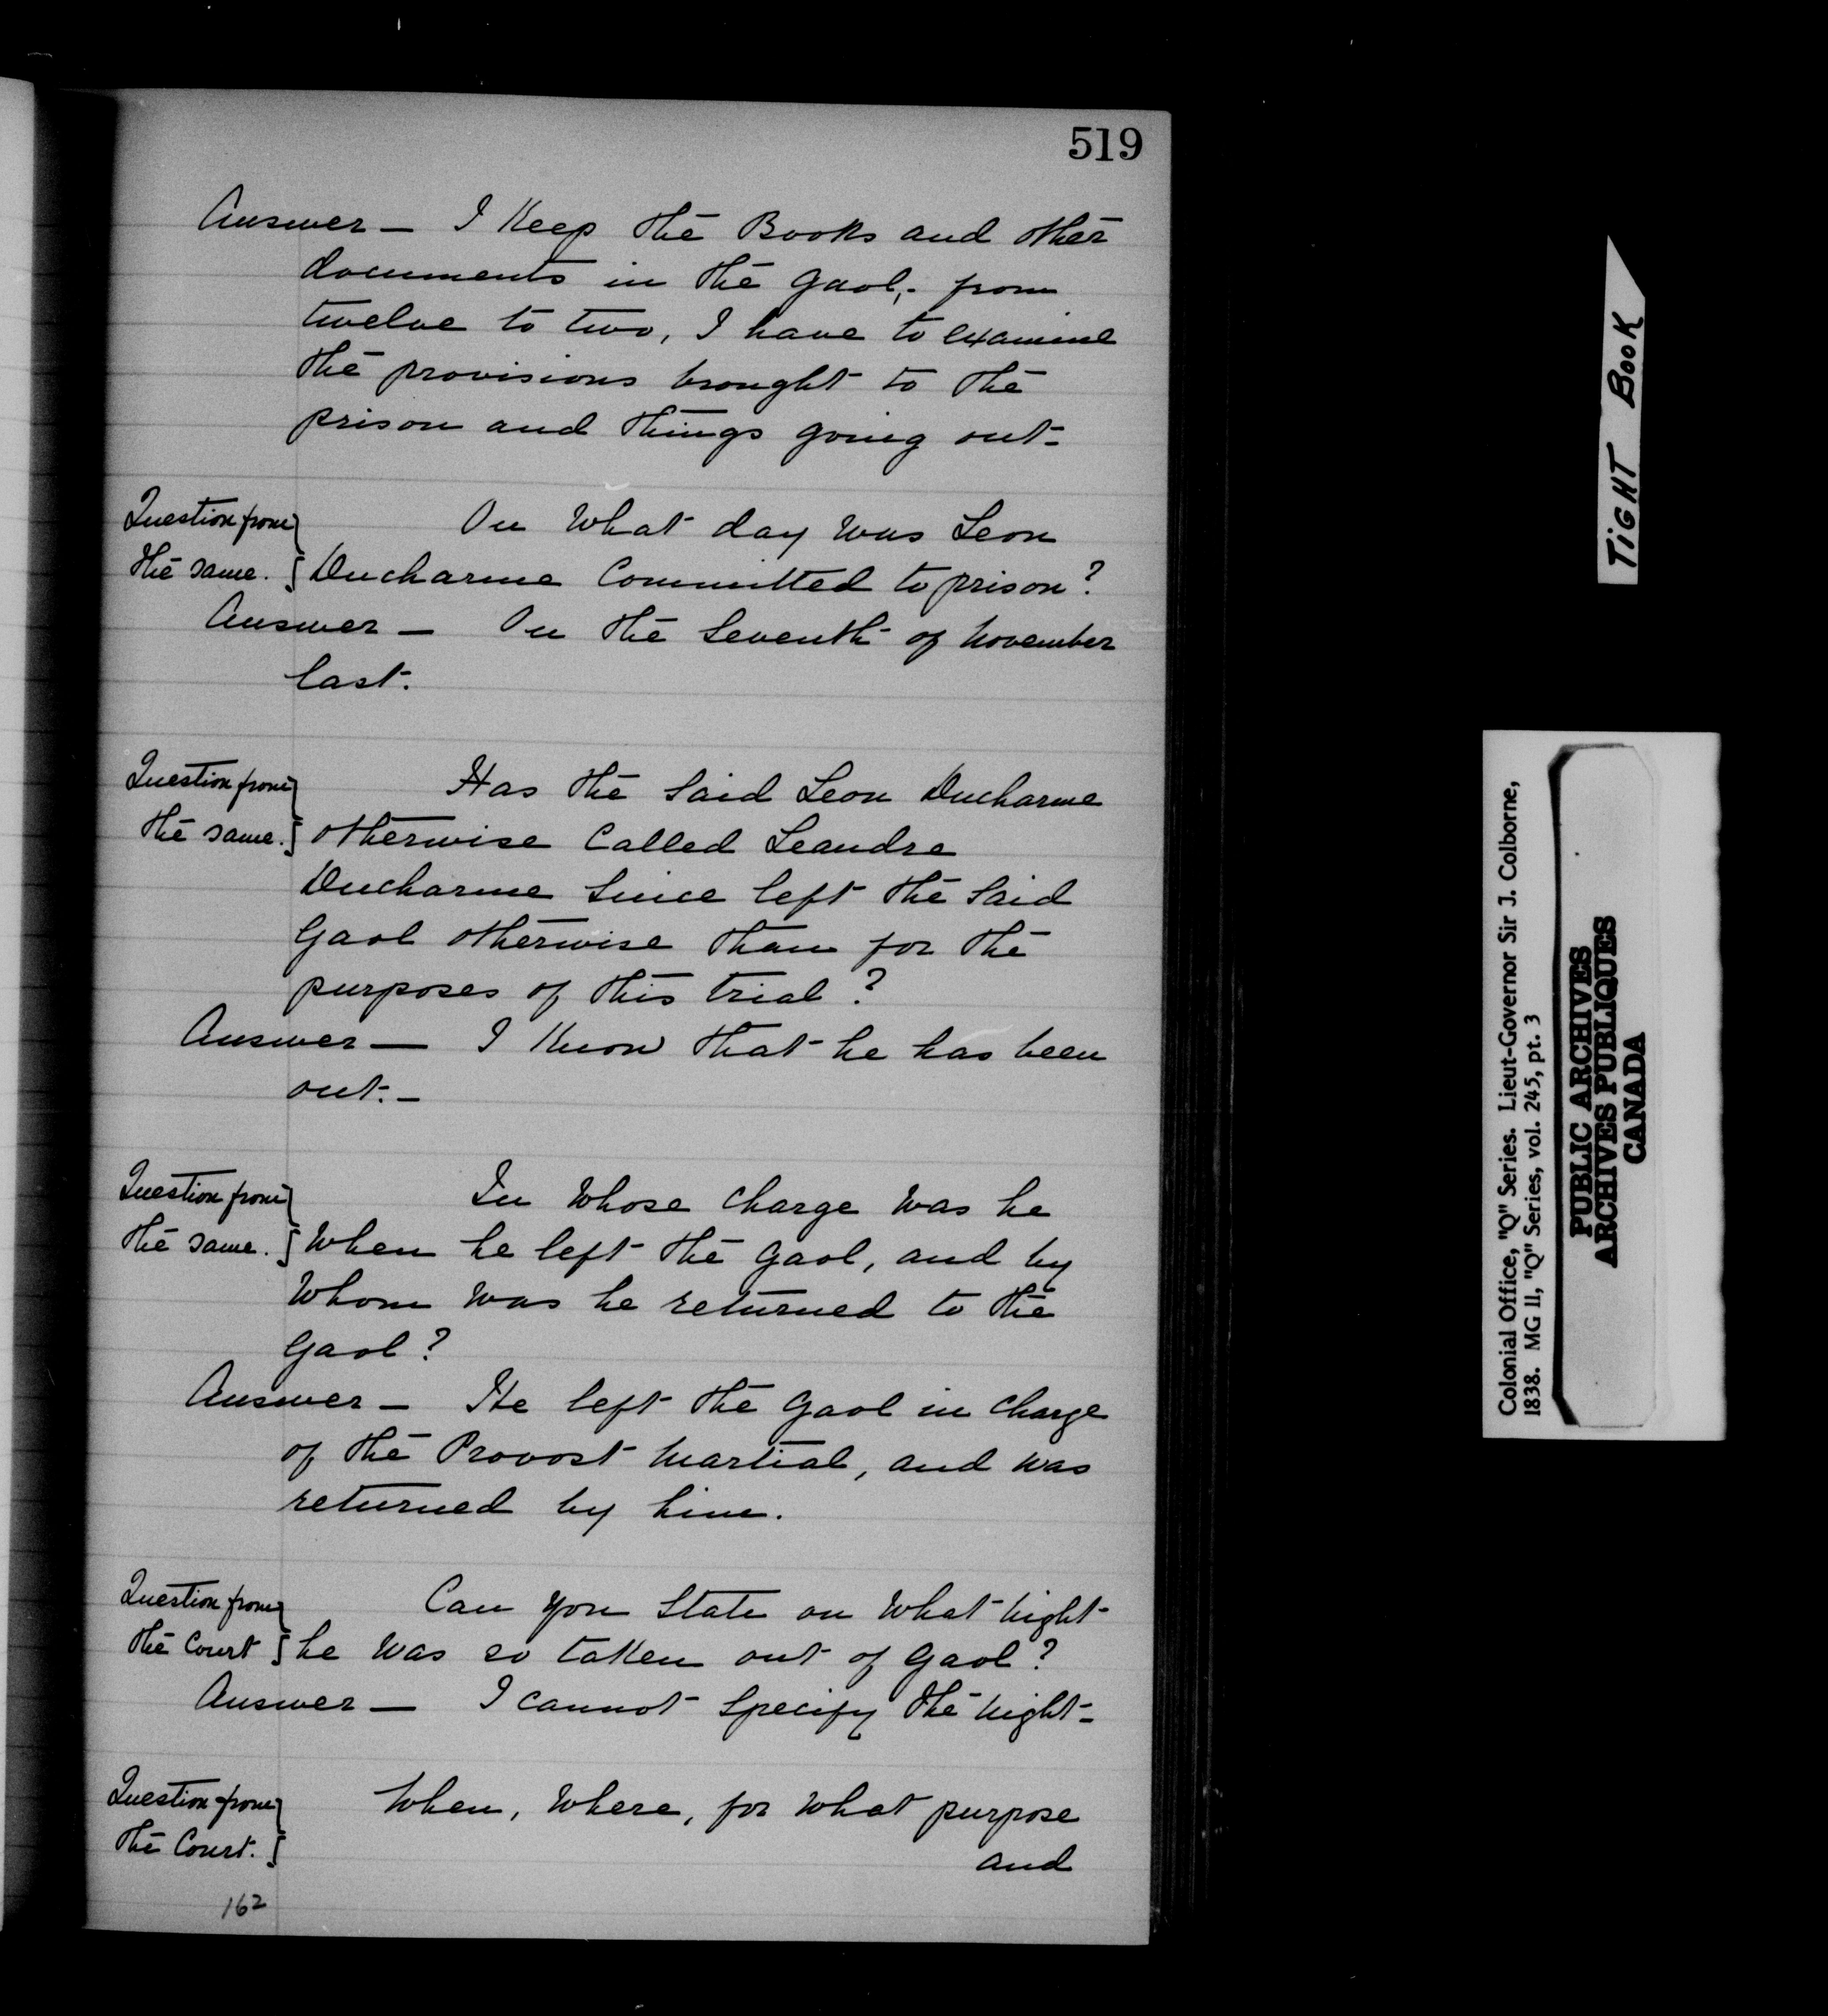 519
Answer — I Keep the Books and other
documents in the Gaol,- from
twelve to two, I have to examine
the provisions brought to the
prison and things going out-
Question from
the same.
On What day Was Leon
Ducharme Committed to prison?
Answer — On the Seventh of November
last.
Question from
the same.
Has the Said Leon Ducharme
otherwise Called Leandre
Ducharme Since left the Said
Gaol otherwise than for the
purposes of this trial?
Answer — I Know that he has been
out.-
Question from
the same.
In Whose Charge Was he
When he left the Gaol, and by
Whom Was he returned to the
Gaol?
Answer — He left the Gaol in Charge
of the Provost Martial, and was
returned by him.
Question from
the Court
Can you State on What Night
he Was so taken out of Gaol?
Answer — I cannot Specify the Night-
Question from
the Court.
When, Where, for What purpose
and
162
TIGHT BOOK
Colonial Office, "Q" Series. Lieut-Governor Sir J. Colborne,
1838. MG 11, "Q" Series, vol. 245, pt. 3
PUBLIC ARCHIVES
ARCHIVES PUBLIQUES
CANADA